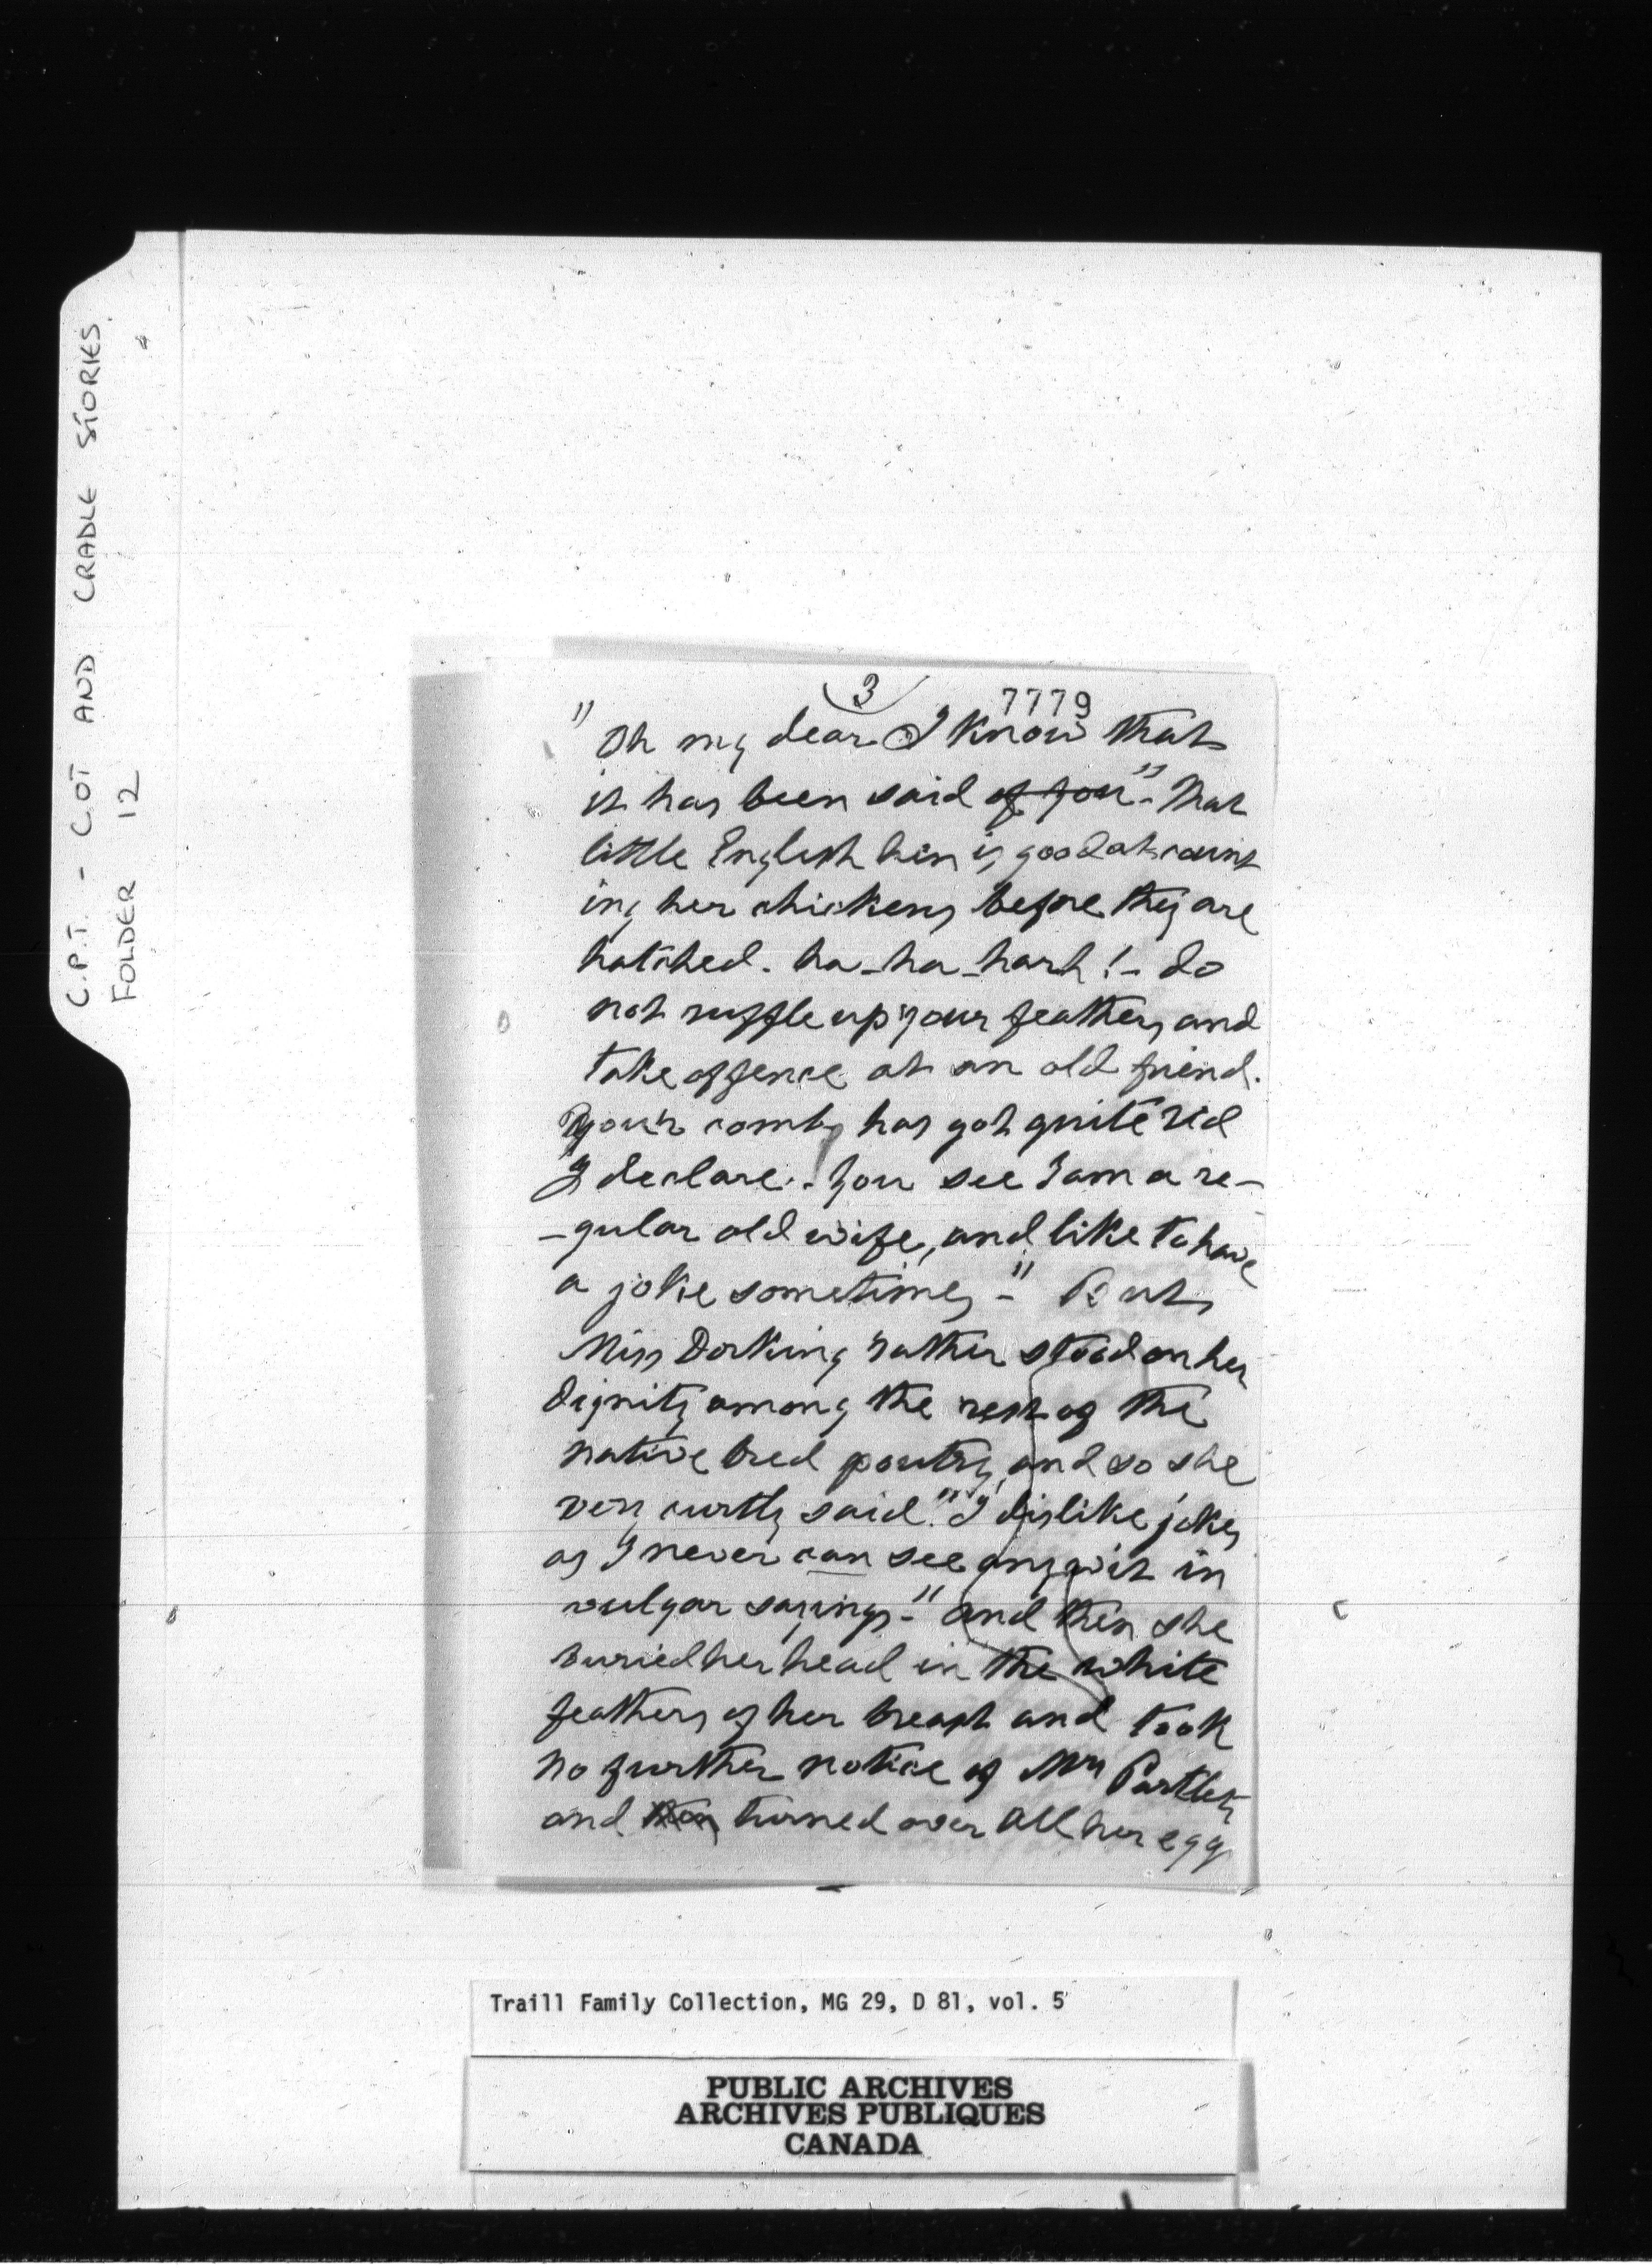 C.P.T. - COT AND CRADLE STORIES.
FOLDER 12
3
7779
"Oh my dear I know that
it has been said of you" - That
little English hen is good at count
ing her chickens before they are
hatched. ha - ha - hah! - do
not ruffle up your feathers and
take offence at an old friend.
Your comb has got quite red
I declare. - You see I am a re-
-gular old wife, and like to have
a joke sometimes -" But
Miss Dorking rather stood on her
dignity among the rest of the
native bred poutry and so she
very curtly said. "I dislike jokes
as I never can see any wit in
vulgar sayings -" and then she
buried her head in the white
feathers of her breast and took
no further notice of Mrs Partlet
and then turned over all her egg
Traill Family Collection, MG 29, D 81, vol. 5
PUBLIC ARCHIVES
ARCHIVES PUBLIQUES
CANADA